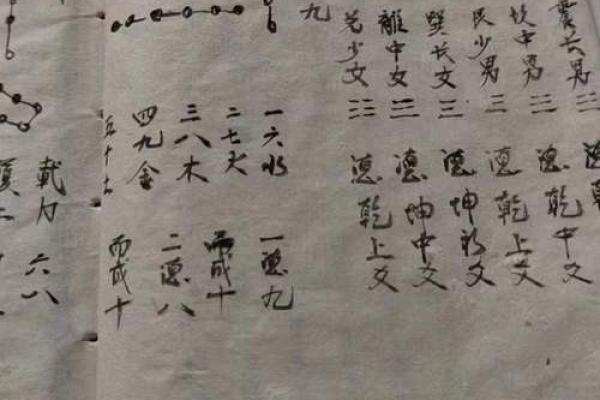 震长男
坎中男
德乾中爻
艮少男
德乾上爻
巽长女
德坤初爻
離中女
德坤中爻
兑少女
德乾上爻
九
一六水
二七火
三八木
四九金
五十土
一德九
而成十
二德八
而成十
載九
六八